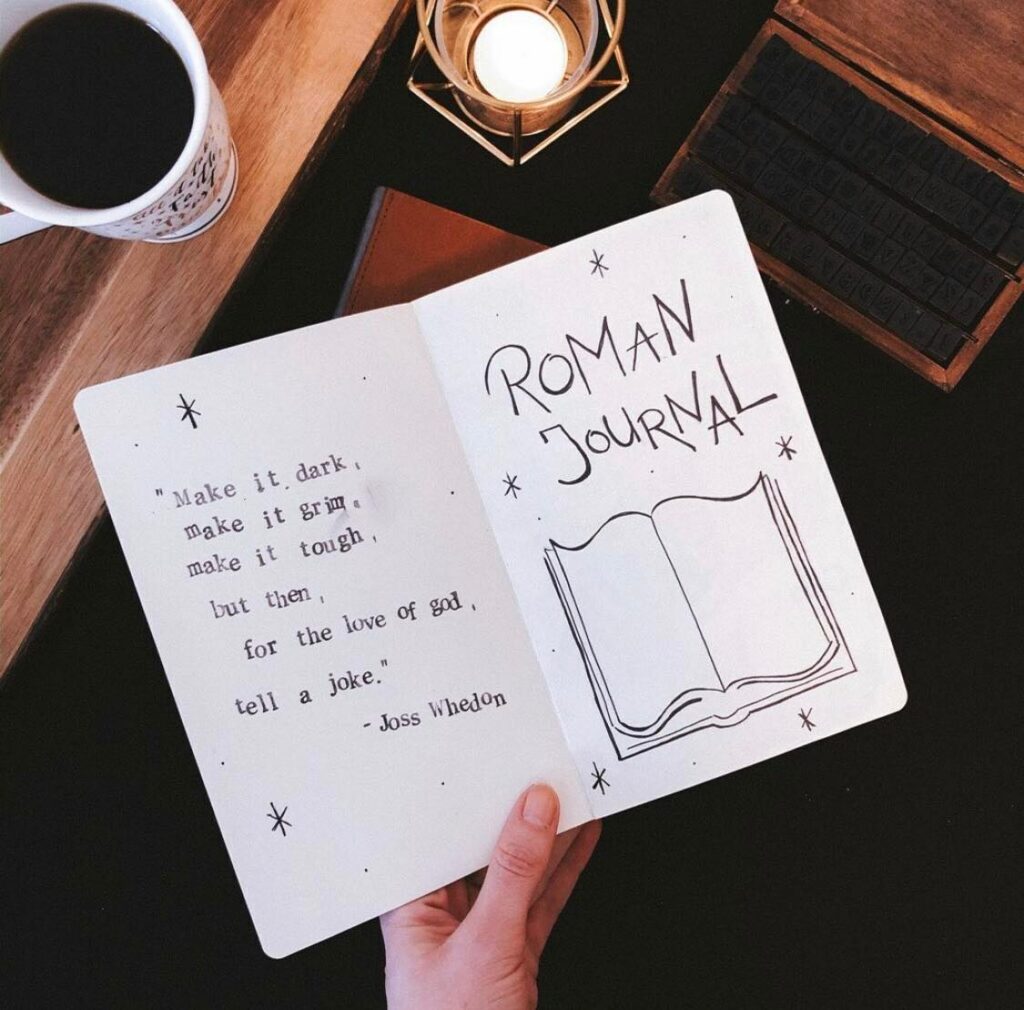 "Make it dark,
make it grim,
make it tough,
but then,
for the love of god,
tell a joke."
- Joss Whedon
ROMAN
JOURNAL